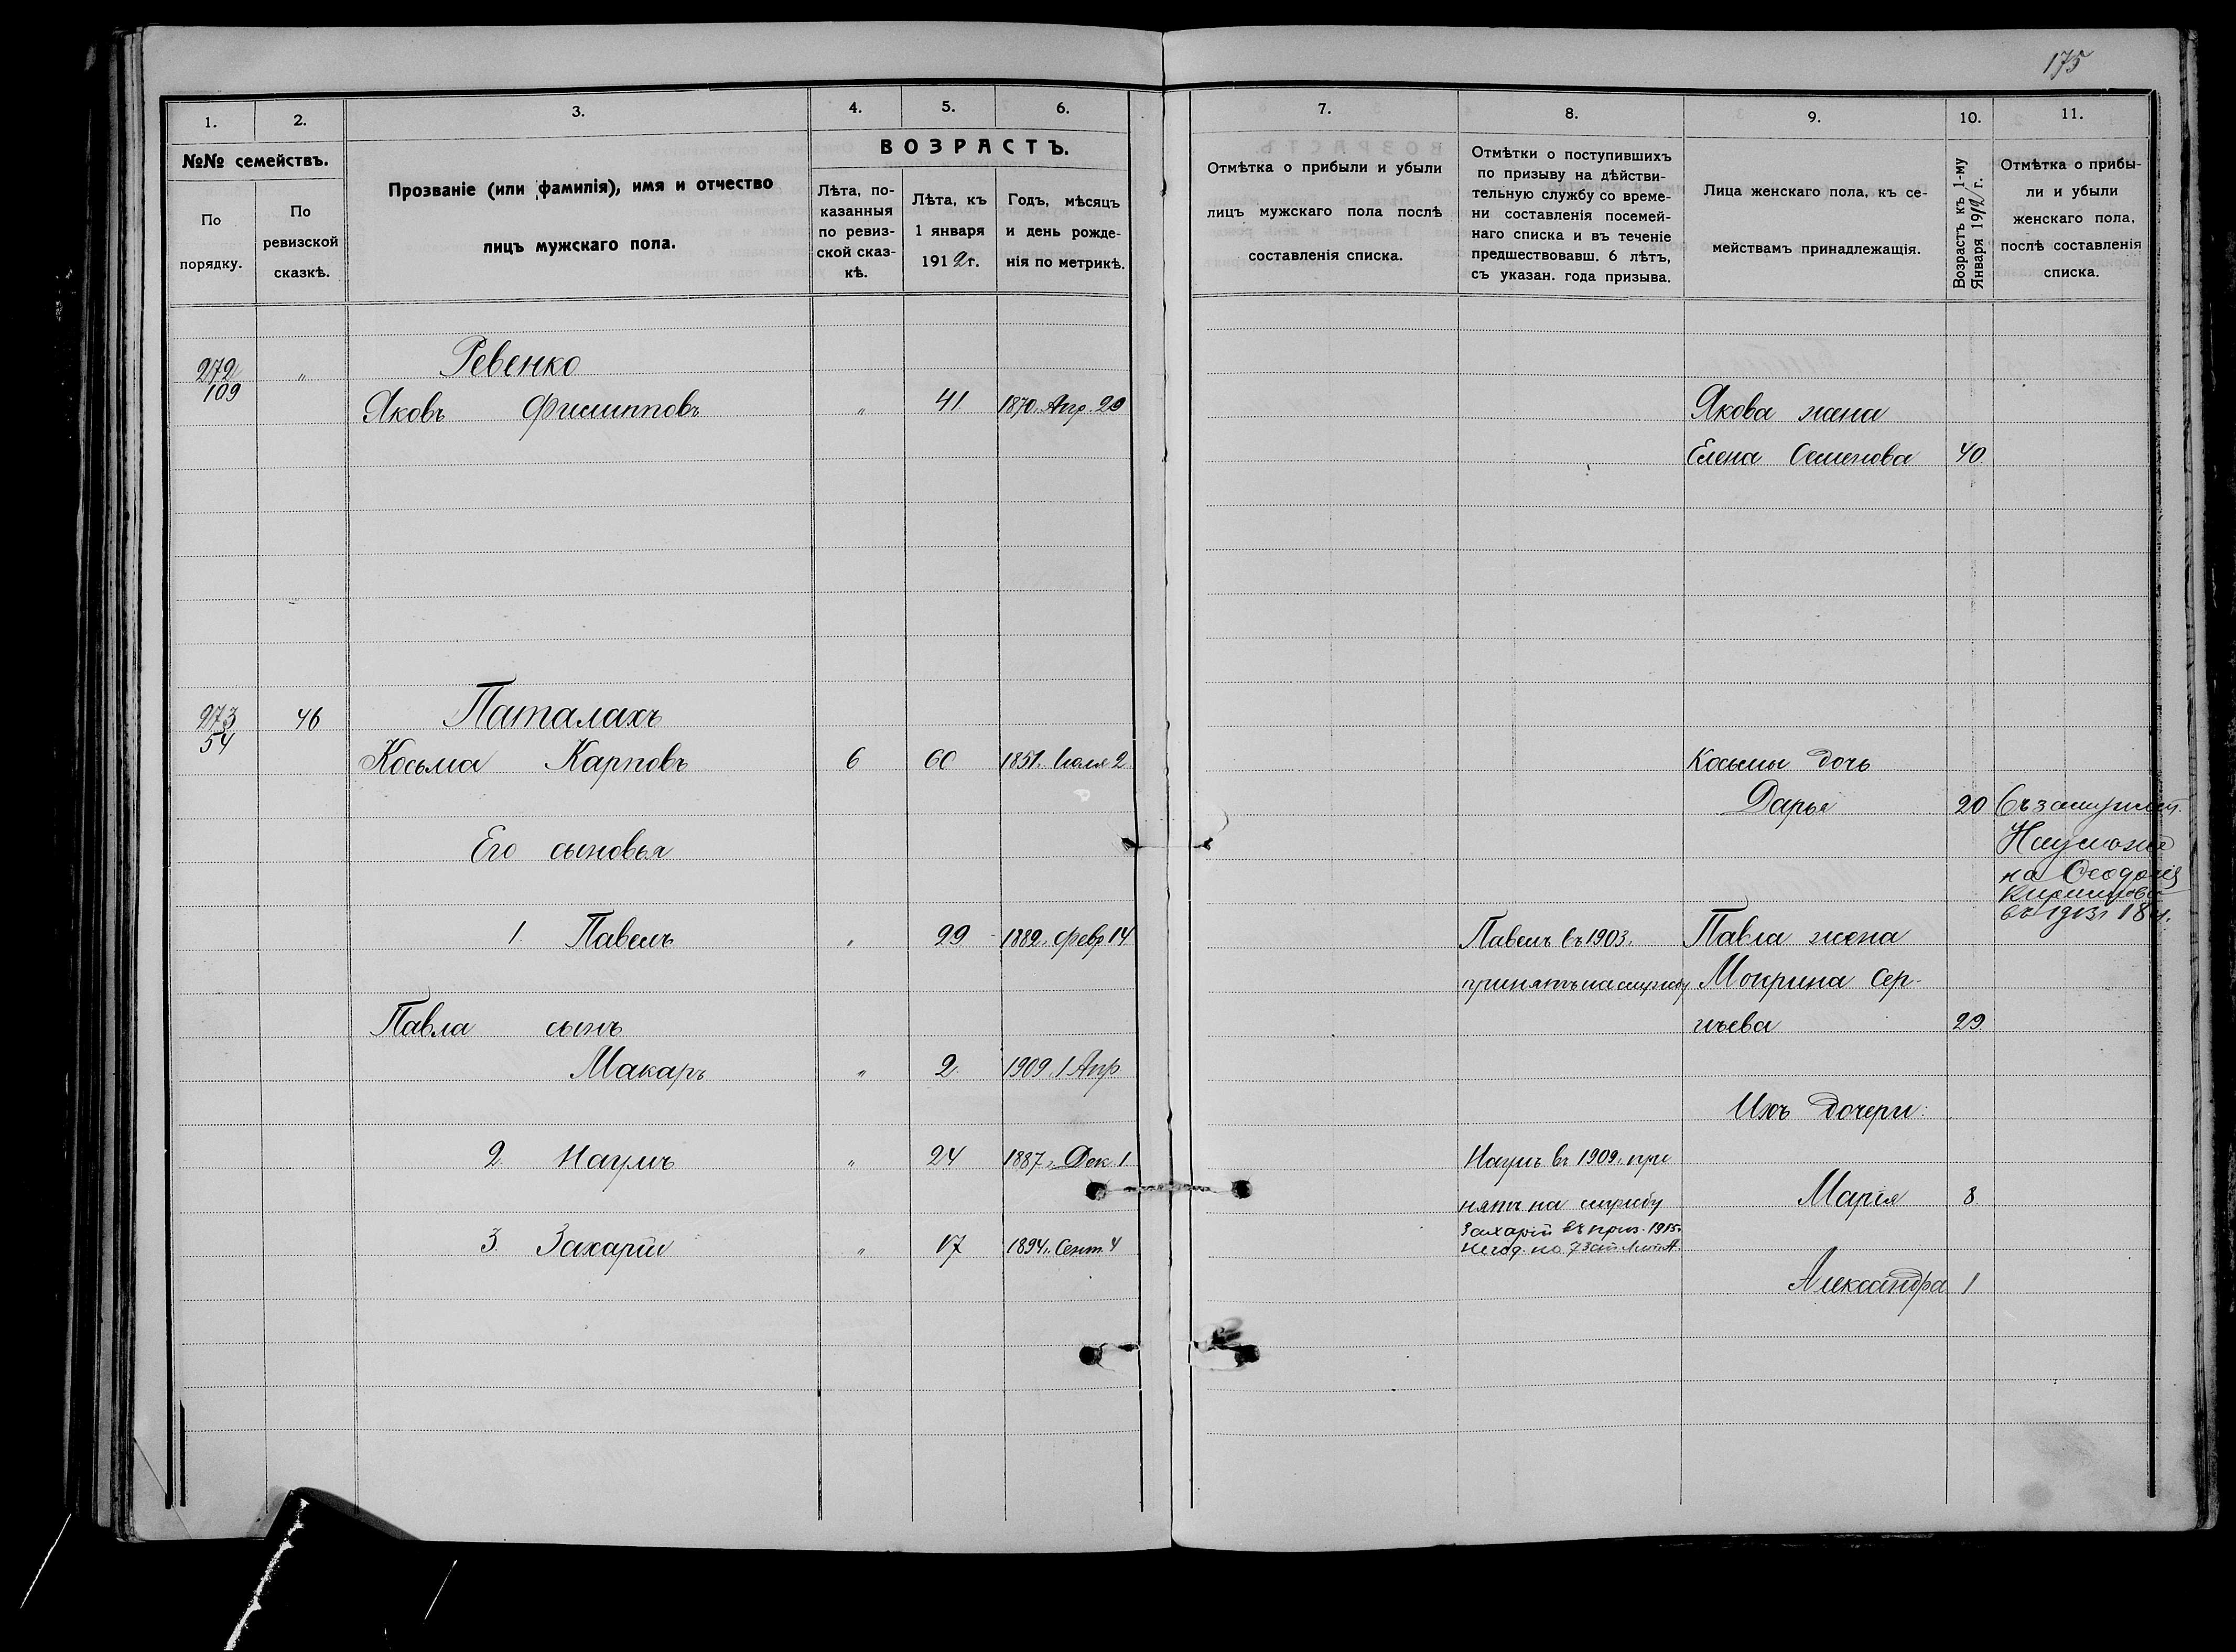 175
1. 2. 3. 4. 5. 6.
№№ семействъ.
По порядку.
По ревизской сказкѣ.
Прозваніе (или фамилія), имя и отчество
лицъ мужскаго пола.
ВОЗРАСТЪ.
Лѣта, по-
казанныя
по ревиз-
ской сказ-
кѣ.
Лѣта, къ
1 января
1912 г.
Годъ, мѣсяцъ
и день рожде-
нія по метрикѣ.
7. 8. 9. 10. 11.
Отмѣтка о прибыли и убыли
лицъ мужскаго пола послѣ
составленія списка.
Отмѣтки о поступившихъ
по призыву на дѣйстви-
тельную службу со време-
ни составленія посемей-
наго списка и въ теченіе
предшествовавш. 6 лѣтъ,
съ указан. года призыва.
Лица женскаго пола, къ се-
мействамъ принадлежащія.
Возрастъ къ 1-му
Января 1912 г.
Отмѣтка о прибы-
ли и убыли
женскаго пола,
послѣ составленія
списка.
272 " Ревенко
109
Яковъ Филипповъ " 41 1870. Апр. 29
Якова жена
Елена Семенова 40
273 46 Паталахъ
54
Косьма Карповъ 6 60 1851. Іюля 2
Косьмы дочь
Дарья 20
Его сыновья
на Ѳеодосія
въ 1913 г.
1. Павелъ " 29 1882. Февр. 14
Павелъ въ 1903.
принятъ на службу
Павла жена
Мокрина Сер-
гѣева 29
Павла сынъ
Макаръ " 2. 1909. 1 Апр
Ихъ дочери:
2. Наумъ " 24 1887. Дек. 1
Наумъ въ 1909. при
нятъ на службу
Марія 8
3. Захарій " 17 1894. Сент. 4
Захарій въ приз. 1915.
негод. по 73 ст. Лит. А.
Александра 1